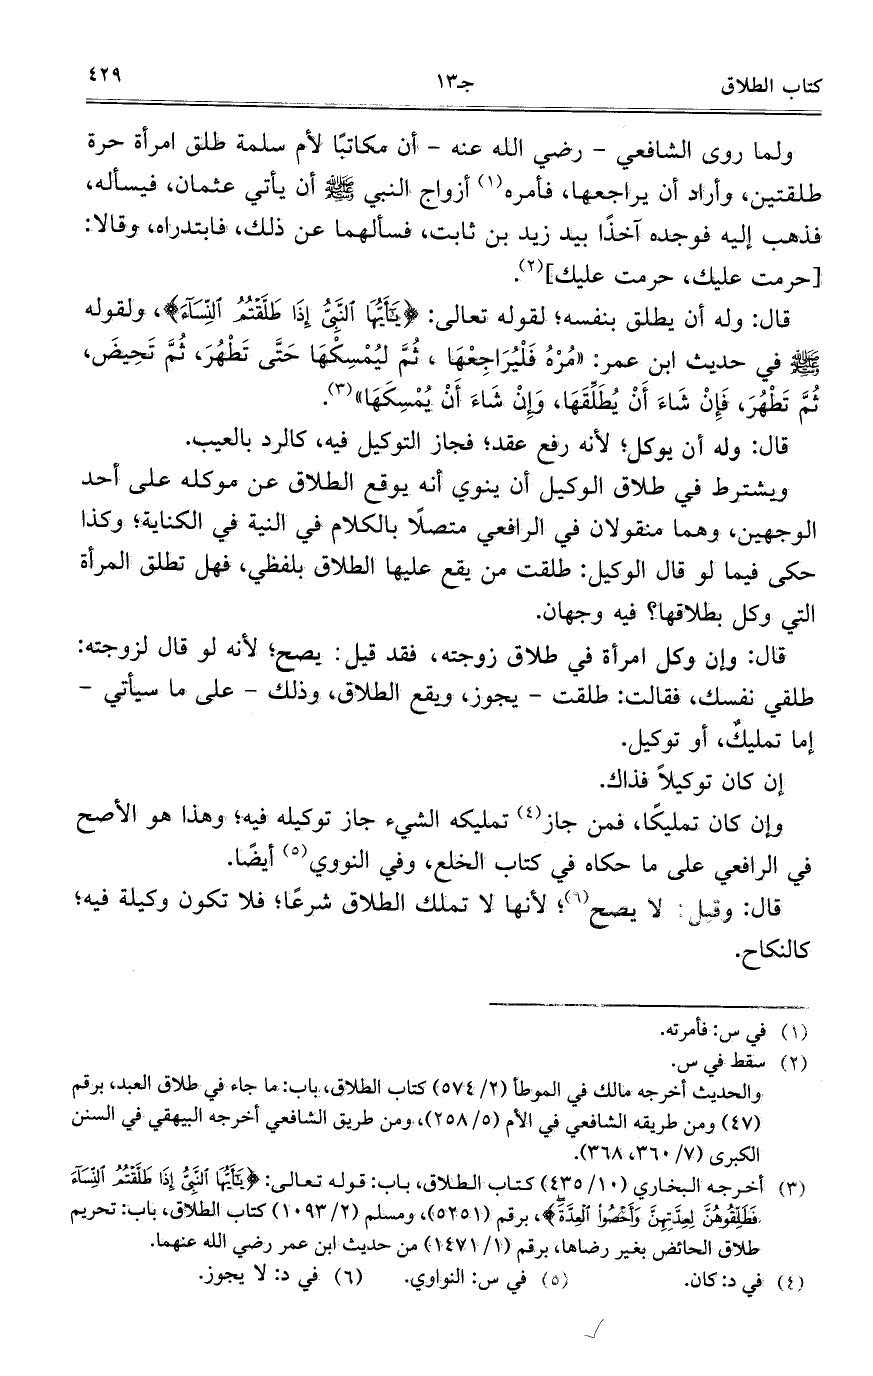 كتاب الطلاق جـ١٣ ٤٢٩
ولما روى الشافعي - رضي الله عنه - أن مكاتبًا لأم سلمة طلق امرأة حرة
طلقتين، وأراد أن يراجعها، فأمره(١) أزواج النبي ﷺ أن يأتي عثمان، فيسأله،
فذهب إليه فوجده آخذًا بيد زيد بن ثابت، فسألهما عن ذلك، فابتدراه، وقالا:
[حرمت عليك، حرمت عليك](٢).
قال: وله أن يطلق بنفسه؛ لقوله تعالى: ﴿يَٰٓأَيُّهَا ٱلنَّبِيُّ إِذَا طَلَّقْتُمُ ٱلنِّسَآءَ﴾، ولقوله
ﷺ في حديث ابن عمر: «مُرْهُ فَلْيُرَاجِعْهَا، ثُمَّ لِيُمْسِكْهَا حَتَّى تَطْهُرَ، ثُمَّ تَحِيضَ،
ثُمَّ تَطْهُرَ، فَإِنْ شَاءَ أَنْ يُطَلِّقَهَا، وَإِنْ شَاءَ أَنْ يُمْسِكَهَا»(٣).
قال: وله أن يوكل؛ لأنه رفع عقد؛ فجاز التوكيل فيه، كالرد بالعيب.
ويشترط في طلاق الوكيل أن ينوي أنه يوقع الطلاق عن موكله على أحد
الوجهين، وهما منقولان في الرافعي متصلًا بالكلام في النية في الكناية؛ وكذا
حكى فيما لو قال الوكيل: طلقت من يقع عليها الطلاق بلفظي، فهل تطلق المرأة
التي وكل بطلاقها؟ فيه وجهان.
قال: وإن وكل امرأة في طلاق زوجته، فقد قيل: يصح؛ لأنه لو قال لزوجته:
طلقي نفسك، فقالت: طلقت - يجوز، ويقع الطلاق، وذلك - على ما سيأتي -
إما تمليكٌ، أو توكيل.
إن كان توكيلاً فذاك.
وإن كان تمليكًا، فمن جاز(٤) تمليكه الشيء جاز توكيله فيه؛ وهذا هو الأصح
في الرافعي على ما حكاه في كتاب الخلع، وفي النووي(٥) أيضًا.
قال: وقيل: لا يصح(٦)؛ لأنها لا تملك الطلاق شرعًا؛ فلا تكون وكيلة فيه؛
كالنكاح.
(١) في س: فأمرته.
(٢) سقط في س.
والحديث أخرجه مالك في الموطأ (٢/ ٥٧٤) كتاب الطلاق، باب: ما جاء في طلاق العبد، برقم
(٤٧) ومن طريقه الشافعي في الأم (٥/ ٢٥٨)، ومن طريق الشافعي أخرجه البيهقي في السنن
الكبرى (٧/ ٣٦٠، ٣٦٨).
(٣) أخرجه البخاري (١٠/ ٤٣٥) كتاب الطلاق، باب: قوله تعالى: ﴿يَٰٓأَيُّهَا ٱلنَّبِيُّ إِذَا طَلَّقْتُمُ ٱلنِّسَآءَ
فَطَلِّقُوهُنَّ لِعِدَّتِهِنَّ وَأَحْصُوا۟ ٱلْعِدَّةَ﴾، برقم (٥٢٥١)، ومسلم (٢/ ١٠٩٣) كتاب الطلاق، باب: تحريم
طلاق الحائض بغير رضاها، برقم (١/ ١٤٧١) من حديث ابن عمر رضي الله عنهما.
(٤) في د: كان. (٥) في س: النواوي. (٦) في د: لا يجوز.